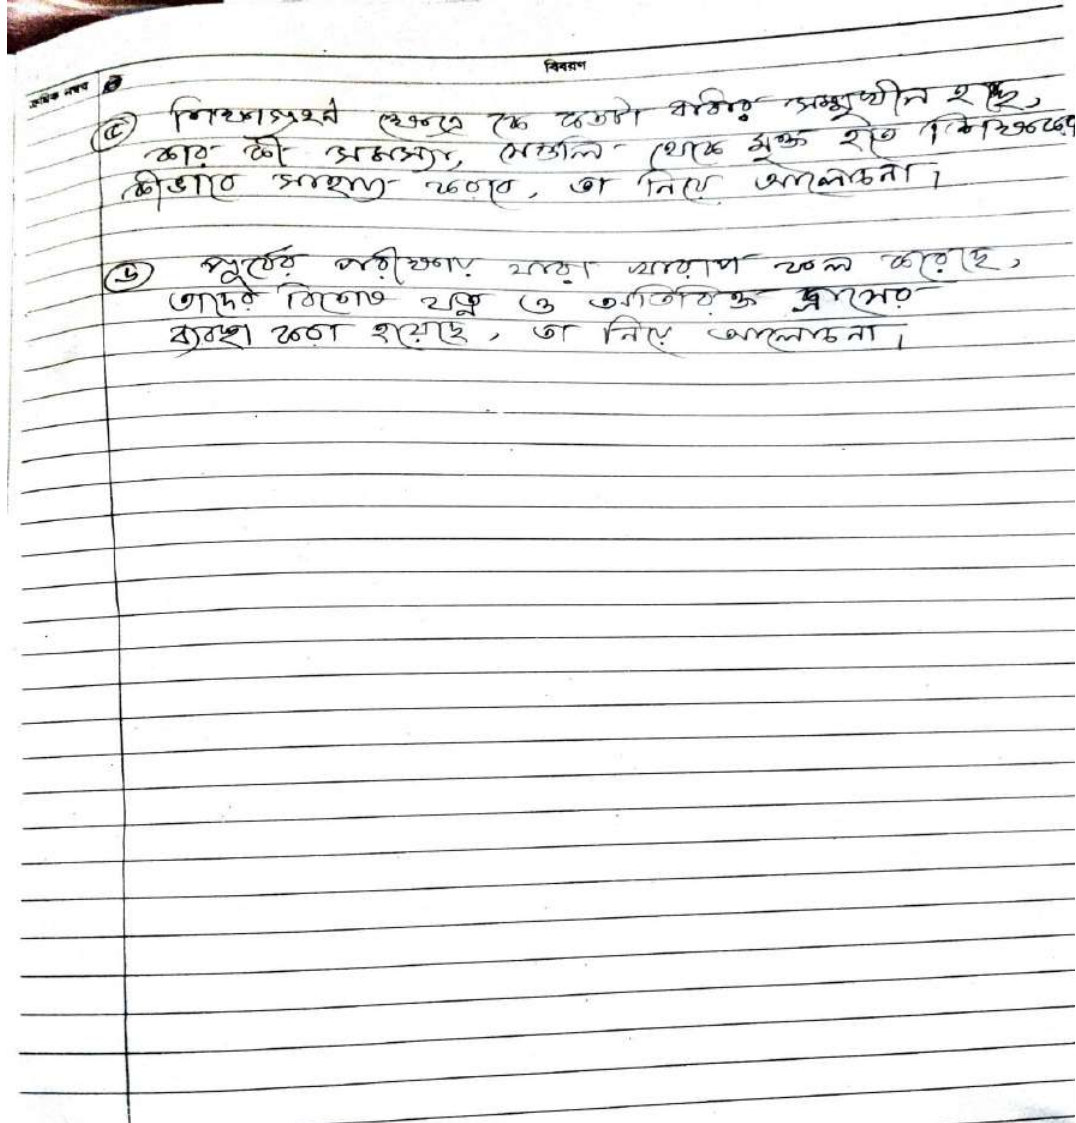 ক্রমিক নম্বর
বিবরণ
৫ শিক্ষাগ্রহণ ক্ষেত্রে কে কতটা বাধার সম্মুখীন হচ্ছে,
কার কী সমস্যা, থেকে মুক্ত হতে শিক্ষকেরা
কীভাবে সাহায্য করবে, তা নিয়ে আলোচনা।
৬ পূর্বের পরীক্ষায় যারা খারাপ ফল করেছে,
তাদের বিশেষ যত্ন ও অতিরিক্ত ক্লাসের
ব্যবস্থা করা হয়েছে, তা নিয়ে আলোচনা।